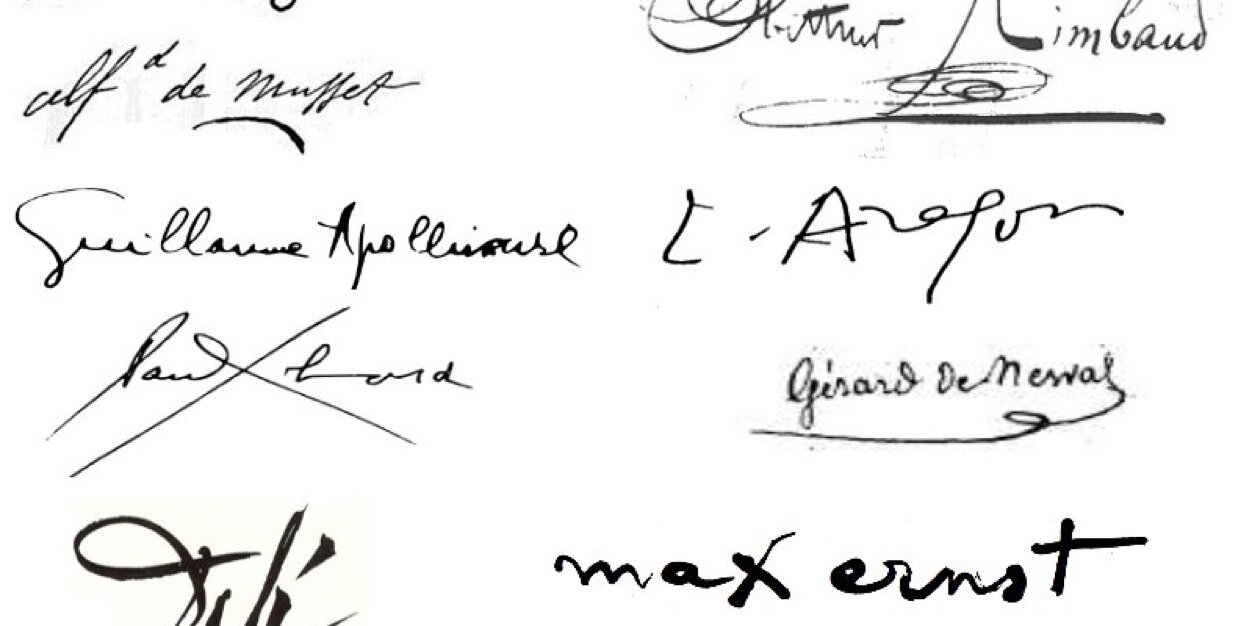 Arthur Rimbaud
Alf d de Musset
Guillaume Apollinaire
L. Aragon
Paul Eluard
Gérard De Nerval
Dalí
max ernst